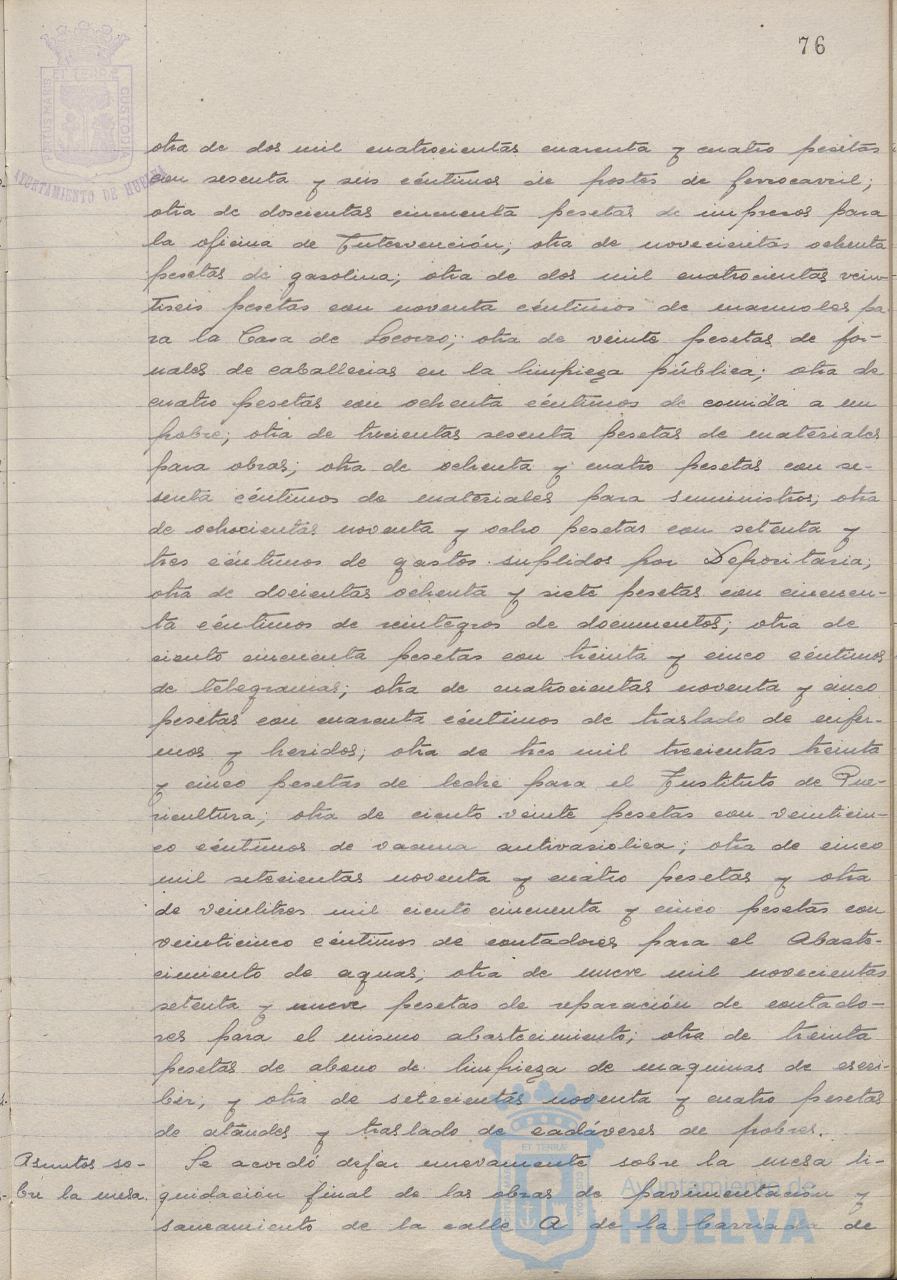 76
PORTUS MARIS ET TERRÆ CUSTODIA
AYUNTAMIENTO DE HUELVA
otra de dos mil cuatrocientas cuarenta y cuatro pesetas
con sesenta y seis céntimos de portes de ferrocarril;
otra de doscientas cincuenta pesetas de impresos para
la oficina de Intervención; otra de novecientas ochenta
pesetas de gasolina; otra de dos mil cuatrocientas vein-
tiseis pesetas con noventa céntimos de marmoles pa-
ra la Casa de Socorro; otra de veinte pesetas de jor-
nales de caballerias en la limpieza pública; otra de
cuatro pesetas con ochenta céntimos de comida a un
pobre; otra de trecientas sesenta pesetas de materiales
para obras; otra de ochenta y cuatro pesetas con se-
senta céntimos de materiales para suministros; otra
de ochocientas noventa y ocho pesetas con setenta y
tres céntimos de gastos suplidos por Depositaria;
otra de docientas ochenta y siete pesetas con cincuen-
ta céntimos de reintegros de documentos; otra de
ciento cincuenta pesetas con treinta y cinco céntimos
de telegramas; otra de cuatrocientas noventa y cinco
pesetas con cuarenta céntimos de traslado de enfer-
mos y heridos; otra de tres mil trecientas treinta
y cinco pesetas de leche para el Instituto de Pue-
ricultura; otra de ciento veinte pesetas con veinticin-
co céntimos de vacuna antivariolica; otra de cinco
mil setecientas noventa y cuatro pesetas y otra
de veintitres mil ciento cincuenta y cinco pesetas con
veinticinco céntimos de contadores para el Abaste-
cimiento de aguas; otra de nueve mil novecientas
setenta y nueve pesetas de reparación de contado-
res para el mismo abastecimiento; otra de treinta
pesetas de abono de limpieza de maquinas de escri-
bir; y otra de setecientas noventa y cuatro pesetas
de ataudes y traslado de cadáveres de pobres.
Asuntos so- Se acordó dejar nuevamente sobre la mesa li-
bre la mesa. quidación final de las obras de pavimentación y
saneamiento de la calle A de la barriada de
Ayuntamiento de
HUELVA